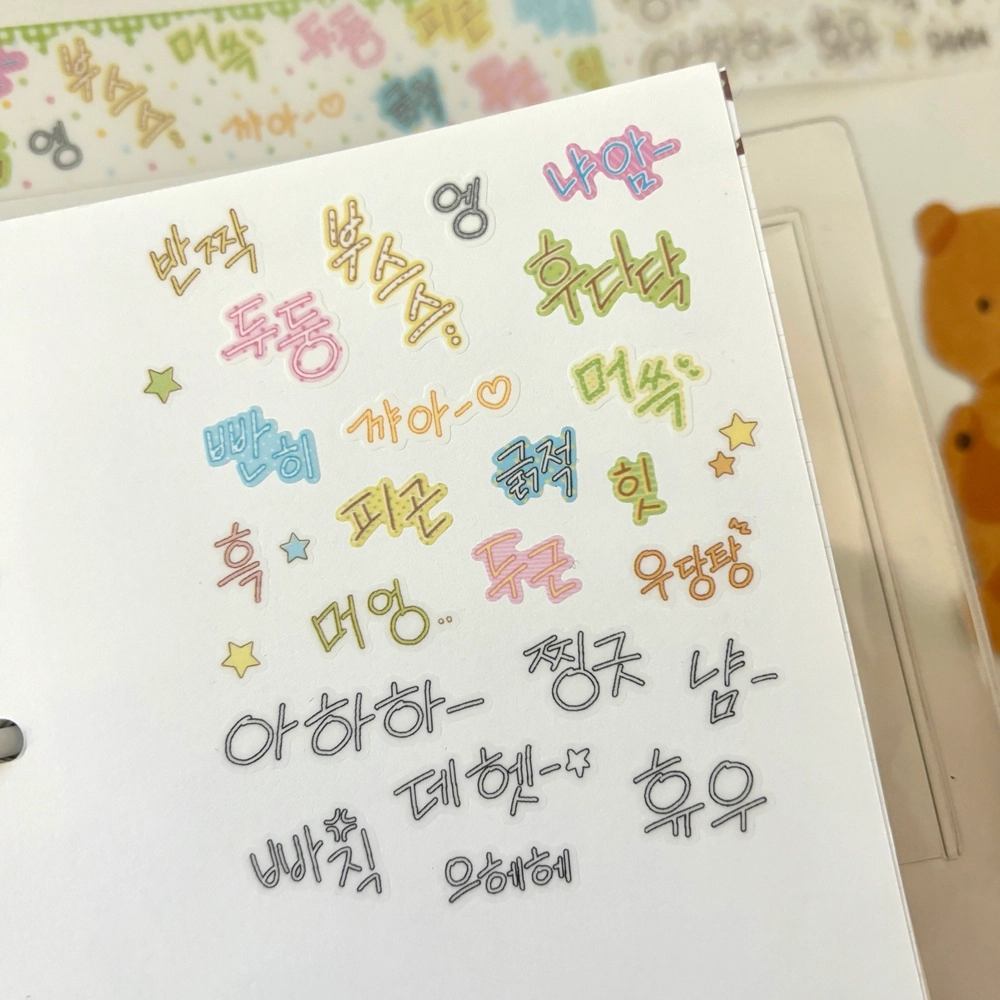 머쓱 두둥 피곤
부시시
엥 꺄아-
냐암-
엥
반짝 부시시
후다닥
두둥
머쓱
꺄아-
빤히
긁적 힛
피곤
흑 두근 우당탕
머엉..
찡긋 냠-
아하하-
데헷-
휴우
빠직 으헤헤